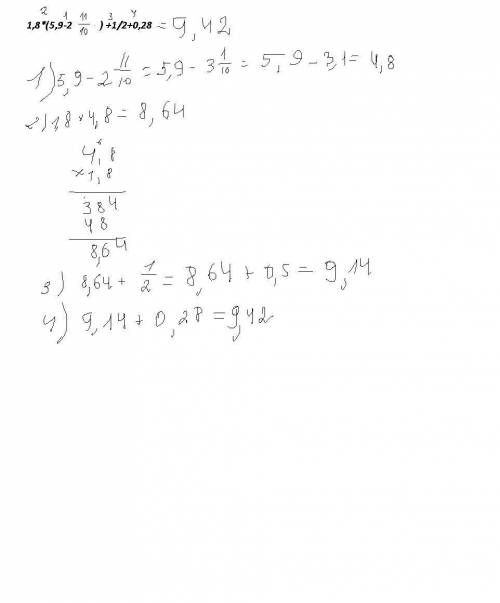 2 1 3 4
1,8*(5,9-2 11/10 ) +1/2+0,28 = 9,42
1) 5,9 - 2 11/10 = 5,9 - 3 1/10 = 5,9 - 3,1 = 4,8
2) 1,8 × 4,8 = 8,64
4,8
×1,8
384
48
8,64
3) 8,64 + 1/2 = 8,64 + 0,5 = 9,14
4) 9,14 + 0,28 = 9,42